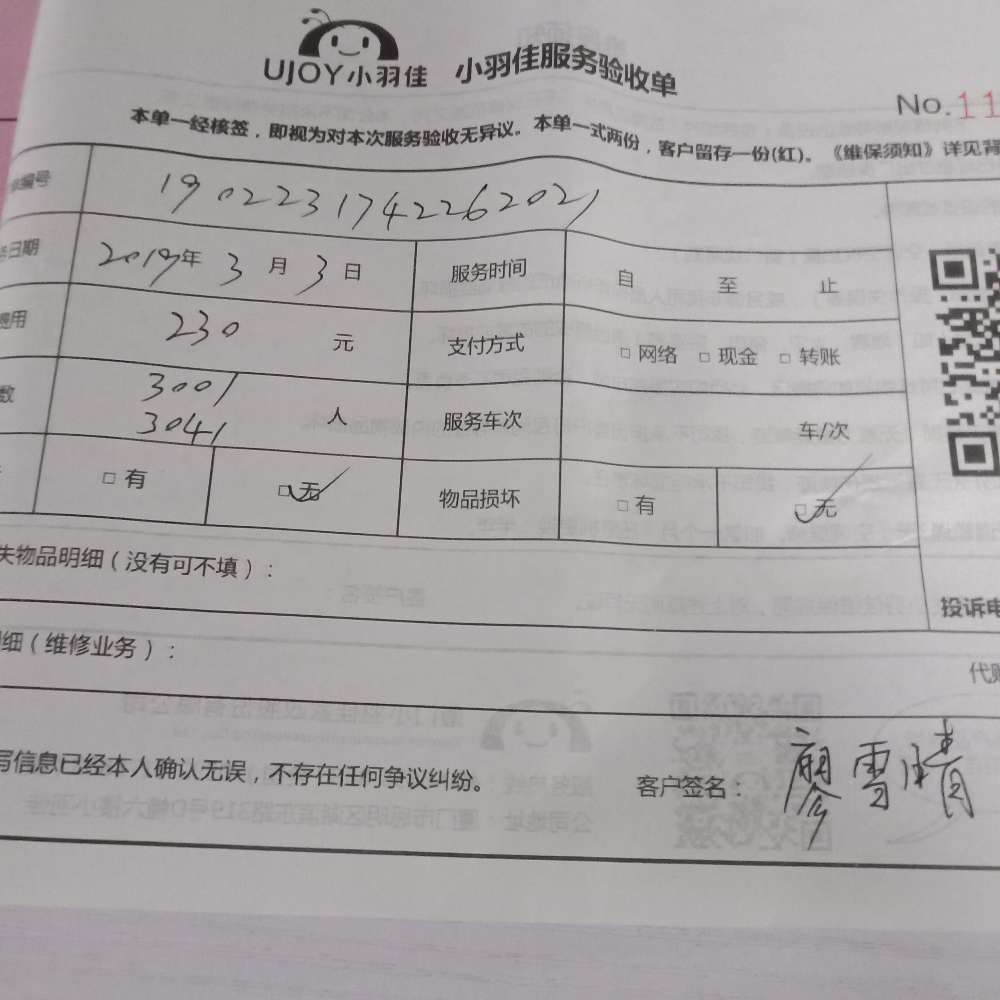 UJOY小羽佳 小羽佳服务验收单
No.11
本单一经核签，即视为对本次服务验收无异议。本单一式两份，客户留存一份(红)。《维保须知》详见背
编号 1902231742262021
日期 2019年 3 月 3 日 服务时间 自 至 止
费用 230 元 支付方式 □ 网络 □ 现金 □ 转账
数 3001 3041 人 服务车次 车/次
□ 有 □ 无 物品损坏 □ 有 □ 无
失物品明细（没有可不填）：
投诉电
细（维修业务）：
代
写信息已经本人确认无误，不存在任何争议纠纷。 客户签名： 廖雪清